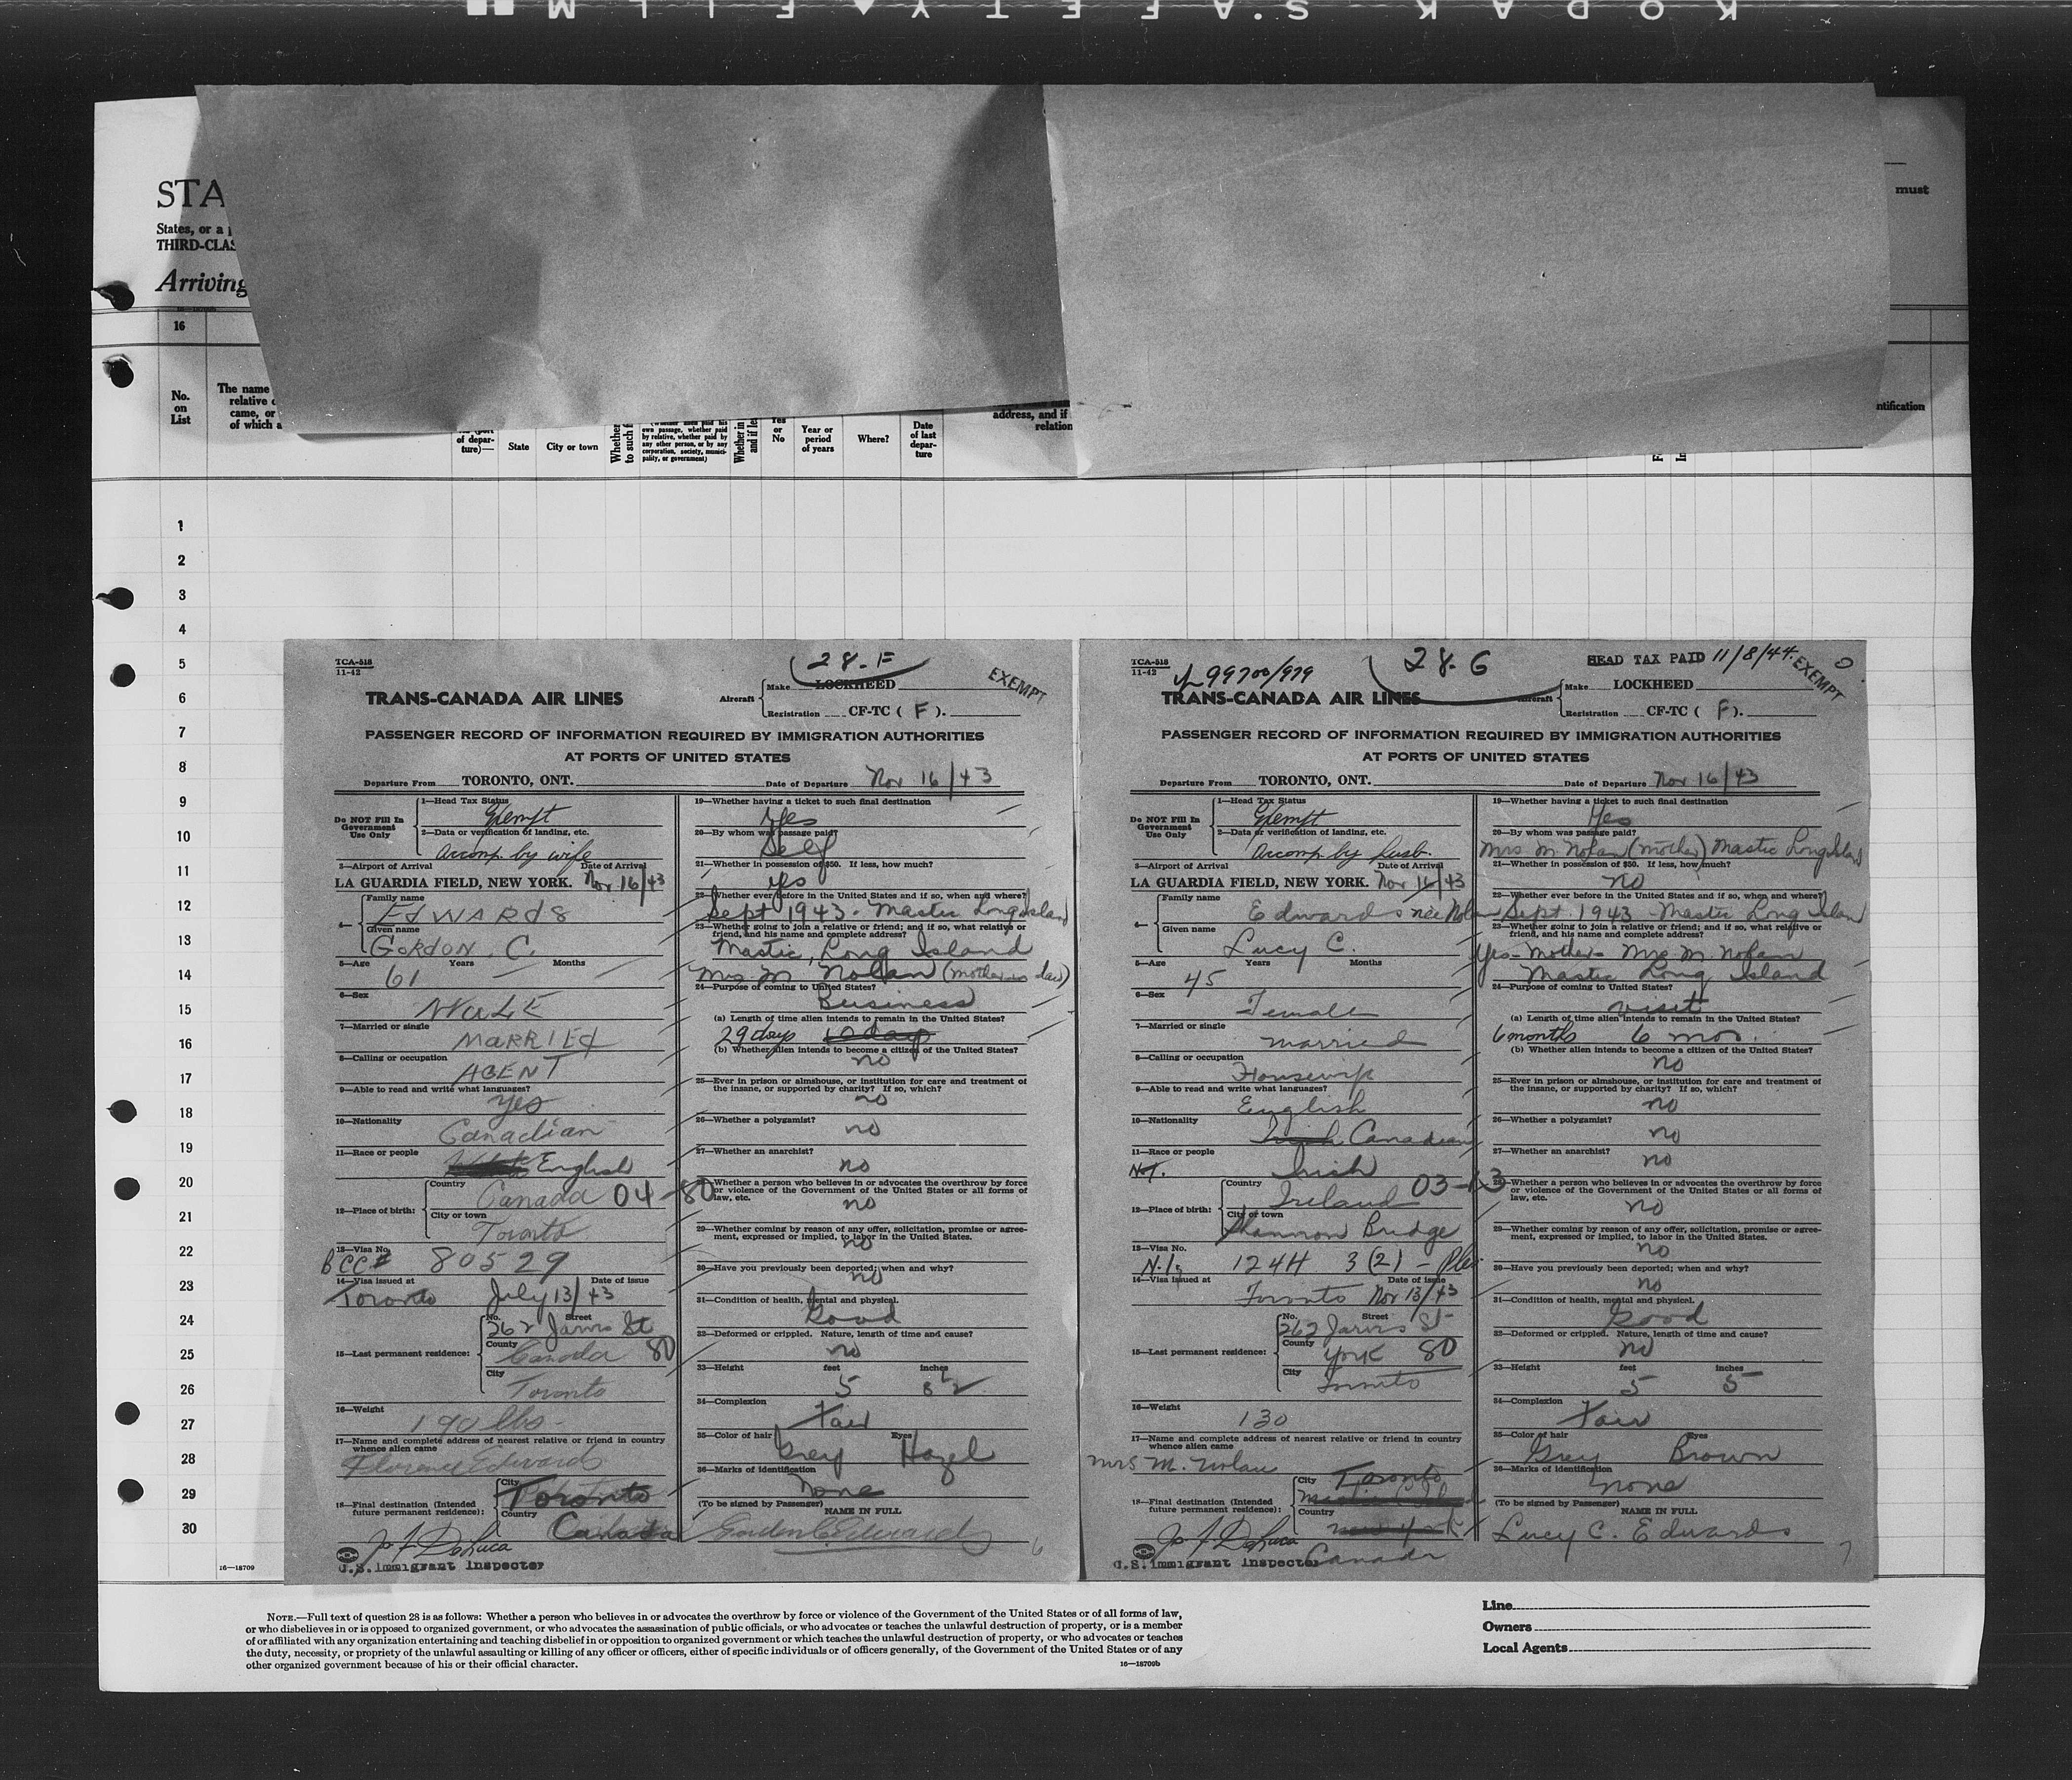 KODAK SAFETY FILM
STA
States, or a
THIRD-CLAS
Arriving
must
16
No.
on
List
The name
relative
came, or
of which a
of depar-
ture)—
State
City or town
Whether
to such f
own passage, whether paid
by relative, whether paid by
any other person, or by any
corporation, society, munici-
pality, or government)
Whether in
and if les
Yes
or
No
Year or
period
of years
Where?
Date
of last
depar-
ture
address, and if
relation
ntification
1
2
3
4
5
6
7
8
9
10
11
12
13
14
15
16
17
18
19
20
21
22
23
24
25
26
27
28
29
30
TCA-518
11-42
28-F
EXEMPT
TRANS-CANADA AIR LINES
Aircraft
Make LOCKHEED
Registration CF-TC ( F ).
PASSENGER RECORD OF INFORMATION REQUIRED BY IMMIGRATION AUTHORITIES
AT PORTS OF UNITED STATES
Departure From TORONTO, ONT. Date of Departure Nov 16/43
Do NOT Fill In
Government
Use Only
1—Head Tax Status
Exempt
2—Data or verification of landing, etc.
Accomp. by wife
3—Airport of Arrival Date of Arrival
LA GUARDIA FIELD, NEW YORK. Nov 16/43
4—
Family name
EdWARdS
Given name
GORDON C.
5—Age Years Months
61
6—Sex
MALE
7—Married or single
MARRIEd
8—Calling or occupation
AGENT
9—Able to read and write what languages?
yes
10—Nationality
Canadian
11—Race or people
English
12—Place of birth:
Country
Canada 04-80
City or town
Toronto
13—Visa No.
BCC# 80529
14—Visa issued at Date of issue
Toronto July 13/43
15—Last permanent residence:
No. Street
262 Jarvis St
County
Canada 80
City
Toronto
16—Weight
190 lbs-
17—Name and complete address of nearest relative or friend in country
whence alien came
Florence Edwards
18—Final destination (Intended
future permanent residence):
City
Toronto
Country
Canada
U.S. Immigrant Inspector
19—Whether having a ticket to such final destination
Yes
20—By whom was passage paid?
Self
21—Whether in possession of $50. If less, how much?
yes
22—Whether ever before in the United States and if so, when and where?
Sept 1943 - Mastic Long Island
23—Whether going to join a relative or friend; and if so, what relative or
friend, and his name and complete address?
Mastic, Long Island
Mrs. M. Nolan (mother in law)
24—Purpose of coming to United States?
Business
(a) Length of time alien intends to remain in the United States?
29 days
(b) Whether alien intends to become a citizen of the United States?
no
25—Ever in prison or almshouse, or institution for care and treatment of
the insane, or supported by charity? If so, which?
no
26—Whether a polygamist?
no
27—Whether an anarchist?
no
28—Whether a person who believes in or advocates the overthrow by force
or violence of the Government of the United States or all forms of
law, etc.
no
29—Whether coming by reason of any offer, solicitation, promise or agree-
ment, expressed or implied, to labor in the United States.
no
30—Have you previously been deported; when and why?
no
31—Condition of health, mental and physical.
Good
32—Deformed or crippled. Nature, length of time and cause?
no
33—Height feet inches
5 8½
34—Complexion
Fair
35—Color of hair Eyes
Grey Hazel
36—Marks of identification
None
(To be signed by Passenger) NAME IN FULL
Gordon C Edwards
6
TCA-518
11-42
28-G
HEAD TAX PAID 11/8/44
EXEMPT
99700/979
TRANS-CANADA AIR LINES
Aircraft
Make LOCKHEED
Registration CF-TC ( F ).
PASSENGER RECORD OF INFORMATION REQUIRED BY IMMIGRATION AUTHORITIES
AT PORTS OF UNITED STATES
Departure From TORONTO, ONT. Date of Departure Nov 16/43
Do NOT Fill In
Government
Use Only
1—Head Tax Status
Exempt
2—Data or verification of landing, etc.
Accomp by husb.
3—Airport of Arrival Date of Arrival
LA GUARDIA FIELD, NEW YORK. Nov 16/43
4—
Family name
Edwards nee Nolan
Given name
Lucy C.
5—Age Years Months
45
6—Sex
Female
7—Married or single
married
8—Calling or occupation
Housewife
9—Able to read and write what languages?
English
10—Nationality
Irish Canadian
11—Race or people
Irish
12—Place of birth:
Country
Ireland 03-13
City or town
Shannon Bridge
13—Visa No.
1244 3(2)
14—Visa issued at Date of issue
Toronto Nov 13/43
15—Last permanent residence:
No. Street
262 Jarvis St
County
York 80
City
Toronto
16—Weight
130
17—Name and complete address of nearest relative or friend in country
whence alien came
Mrs M. Nolan
18—Final destination (Intended
future permanent residence):
City
Toronto
Country
New York
Canada
U.S. Immigrant Inspector
19—Whether having a ticket to such final destination
Yes
20—By whom was passage paid?
Mrs M Nolan (Mother) Mastic Long Island
21—Whether in possession of $50. If less, how much?
no
22—Whether ever before in the United States and if so, when and where?
Sept. 1943 - Mastic Long Island
23—Whether going to join a relative or friend; and if so, what relative or
friend, and his name and complete address?
Yes- Mother- Mrs M Nolan
Mastic Long Island
24—Purpose of coming to United States?
visit
(a) Length of time alien intends to remain in the United States?
6 months 6 mos.
(b) Whether alien intends to become a citizen of the United States?
no
25—Ever in prison or almshouse, or institution for care and treatment of
the insane, or supported by charity? If so, which?
no
26—Whether a polygamist?
no
27—Whether an anarchist?
no
28—Whether a person who believes in or advocates the overthrow by force
or violence of the Government of the United States or all forms of
law, etc.
no
29—Whether coming by reason of any offer, solicitation, promise or agree-
ment, expressed or implied, to labor in the United States.
no
30—Have you previously been deported; when and why?
no
31—Condition of health, mental and physical.
Good
32—Deformed or crippled. Nature, length of time and cause?
no
33—Height feet inches
5 5
34—Complexion
Fair
35—Color of hair Eyes
Grey Brown
36—Marks of identification
none
(To be signed by Passenger) NAME IN FULL
Lucy C. Edwards
7
16—18709
NOTE.—Full text of question 28 is as follows: Whether a person who believes in or advocates the overthrow by force or violence of the Government of the United States or of all forms of law,
or who disbelieves in or is opposed to organized government, or who advocates the assassination of public officials, or who advocates or teaches the unlawful destruction of property, or is a member
of or affiliated with any organization entertaining and teaching disbelief in or opposition to organized government or which teaches the unlawful destruction of property, or who advocates or teaches
the duty, necessity, or propriety of the unlawful assaulting or killing of any officer or officers, either of specific individuals or of officers generally, of the Government of the United States or of any
other organized government because of his or their official character.
16—18709b
Line
Owners
Local Agents